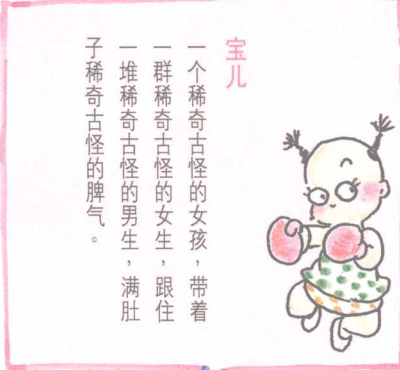 宝儿
一个稀奇古怪的女孩，带着
一群稀奇古怪的女生，跟住
一堆稀奇古怪的男生，满肚
子稀奇古怪的脾气。